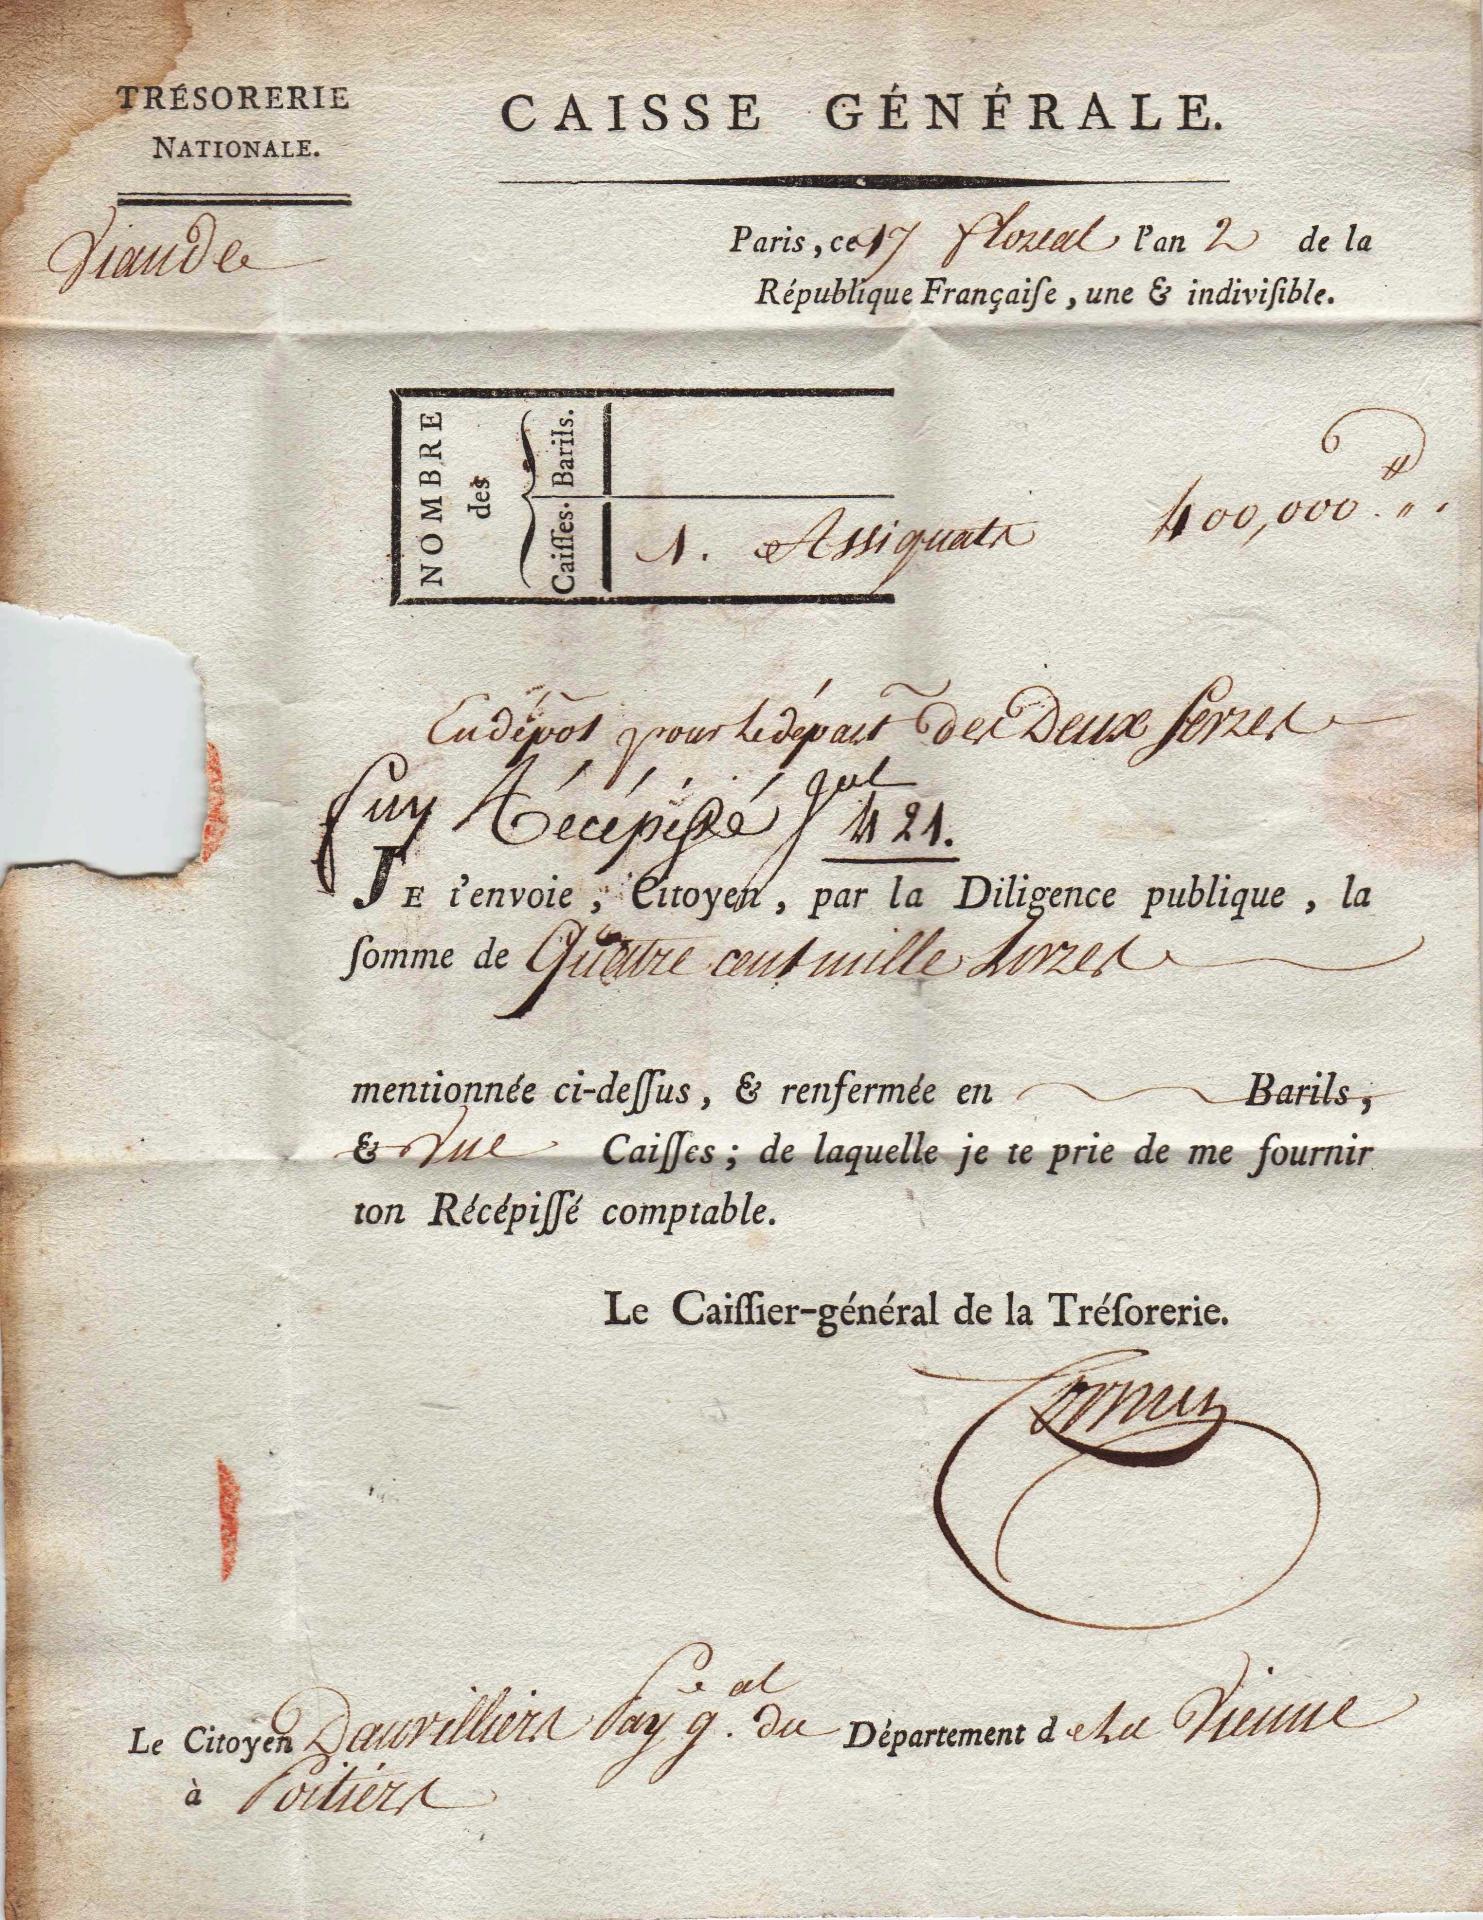 TRÉSORERIE
NATIONALE.
CAISSE GÉNÉRALE.
Viande
Paris, ce 17 floreal l'an 2 de la
République Françaiſe, une & indiviſible.
NOMBRE
des
Caiſſes. Barils.
1. Assignats 400,000.
En dépôt pour le départ des Deux Sevres
suy Récépissé gal 421.
JE t'envoie, Citoyen, par la Diligence publique, la
ſomme de Quatre cent mille Livres
mentionnée ci-deſſus, & renfermée en Barils,
& Une Caiſſes; de laquelle je te prie de me fournir
ton Récépiſſé comptable.
Le Caiſſier-général de la Tréſorerie.
Le Citoyen Dauvilliers Pay.e g.al du Département de la Vienne
à Poitiers